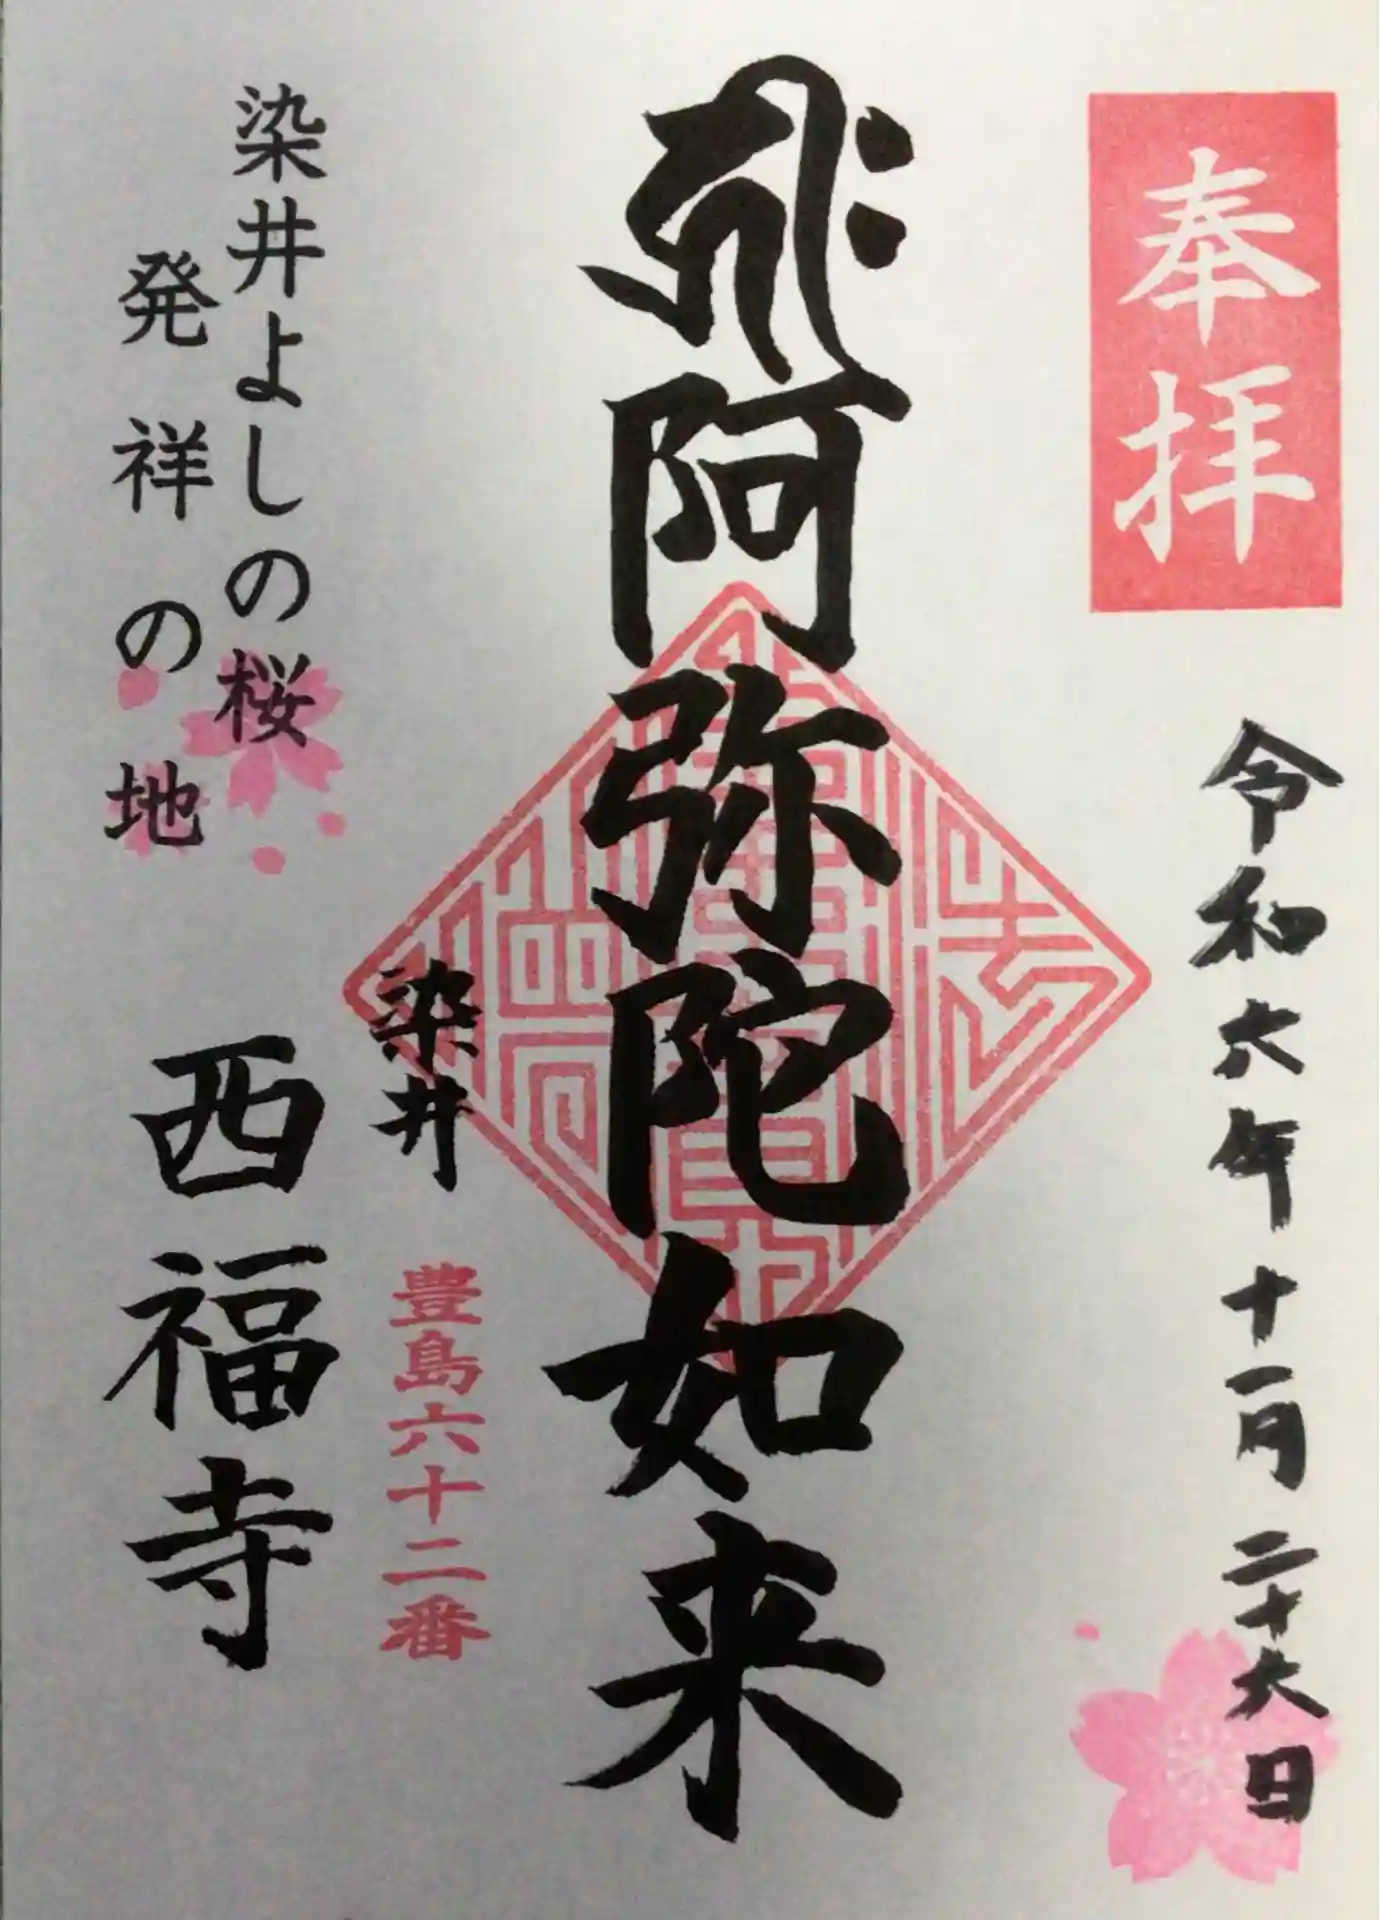 奉拝
令和六年十一月二十六日
阿弥陀如来
染井
豊島六十二番
染井よしの桜
発祥の地
西福寺